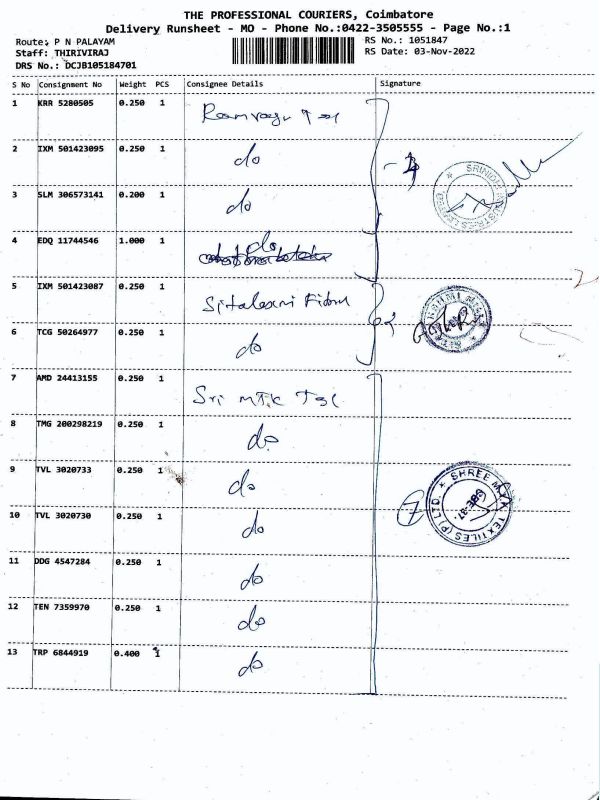 THE PROFESSIONAL COURIERS, Coimbatore
Delivery Runsheet - MO - Phone No.:0422-3505555 - Page No.:1
Route: P N PALAYAM
Staff: THIRIVIRAJ
DRS No.: DCJB105184701
RS No.: 1051847
RS Date: 03-Nov-2022
S No Consignment No Weight PCS Consignee Details Signature
1 KRR 5280505 0.250 1
2 IXM 501423095 0.250 1 do
3 SLM 306573141 0.200 1 do
4 EDQ 11744546 1.000 1 do
5 IXM 501423087 0.250 1
6 TCG 50264977 0.250 1 do
7 AMD 24413155 0.250 1 Sri
8 TMG 200298219 0.250 1 do
9 TVL 3020733 0.250 1 do
10 TVL 3020730 0.250 1 do
11 DDG 4547284 0.250 1 do
12 TEN 7359970 0.250 1 do
13 TRP 6844919 0.400 1 do
SHREE TEXTILES (P) LTD
CBE-37.